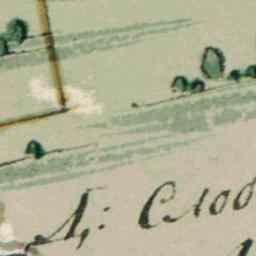 Д: Слоб